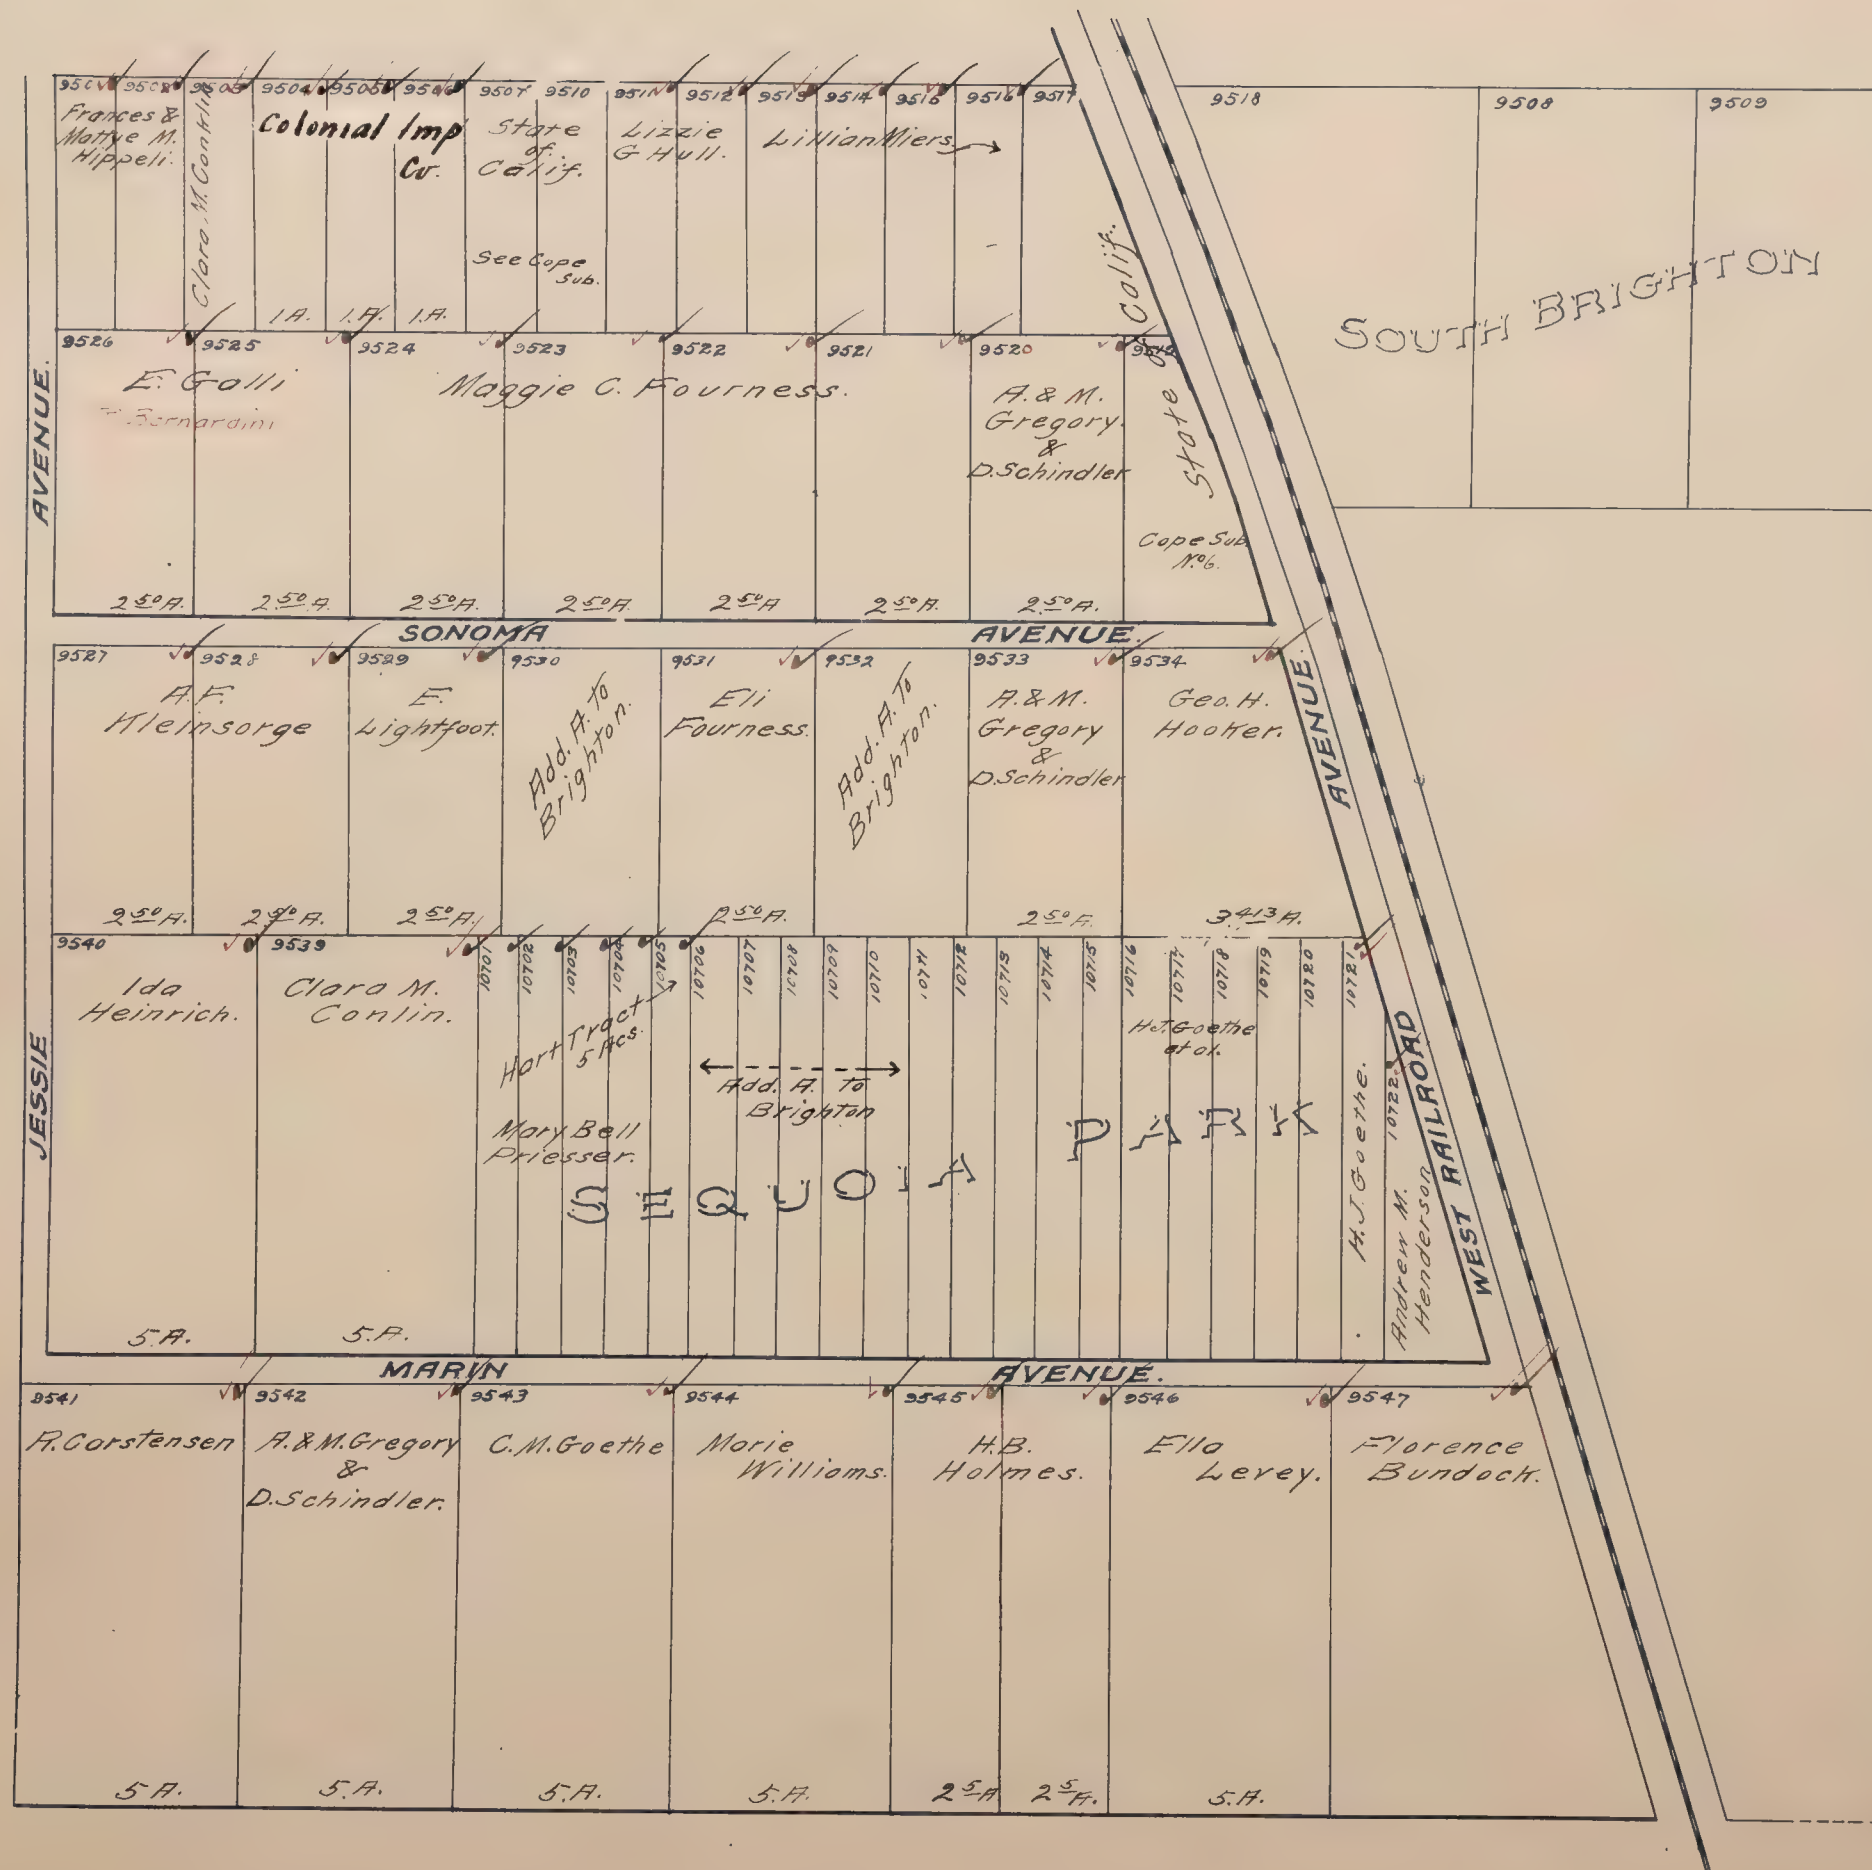 9502
9504
9505
9506
9507
9510
9511
9512
9513
9514
9515
9516
9517
9518
9508
9509
Frances &
Mattye M.
Hippeli.
Clara. M. Conklin
Colonial Imp
Co.
State
of
Calif.
See Cope
Sub.
Lizzie
G Hull.
Lillian Miers
1 A.
1 A.
1 A.
State of Calif.
SOUTH BRIGHTON
9526
9525
9524
9523
9522
9521
9520
9519
E. Galli
Bernardini
Maggie C. Fourness.
A. & M.
Gregory
&
D. Schindler
Cope Sub.
No 6.
2 50 A.
2 50 A.
2 50 A.
2 50 A.
2 50 A
2 50 A.
2 50 A.
AVENUE.
SONOMA AVENUE.
9527
9528
9529
9530
9531
9532
9533
9534
A. F.
Kleinsorge
E.
Lightfoot.
Add. A. To
Brighton.
Eli
Fourness.
Add. A. To
Brighton.
A. & M.
Gregory
&
D. Schindler
Geo. H.
Hooker.
2 50 A.
2 50 A.
2 50 A.
2 50 A.
2 50 A.
3 413 A.
AVENUE.
9540
9539
10701
10702
10703
10704
10705
10706
10707
10708
10709
10710
10711
10712
10713
10714
10715
10716
10717
10718
10719
10720
10721
10722
Ida
Heinrich.
Clara M.
Conlin.
Hart Tract
5 Acs.
Add. A. To
Brighton
Mary Bell
Priesser.
H. J. Goethe
et al.
H. J. Goethe.
Andrew M.
Henderson
SEQUOIA PARK
5. A.
5. A.
JESSIE
WEST RAILROAD
MARIN AVENUE.
9541
9542
9543
9544
9545
9546
9547
R. Carstensen
A. & M. Gregory
&
D. Schindler.
C. M. Goethe
Marie
Williams.
H. B.
Holmes.
Ella
Levey.
Florence
Bundock.
5 A.
5. A.
5. A.
5. A.
2 5 A
2 5 A.
5. A.